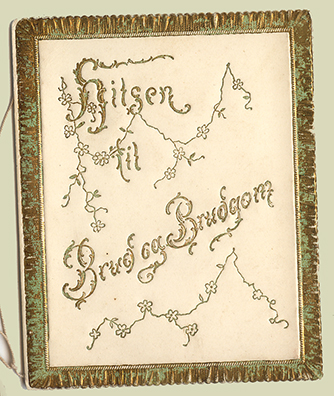 Hilsen
til
Brud og Brudgom